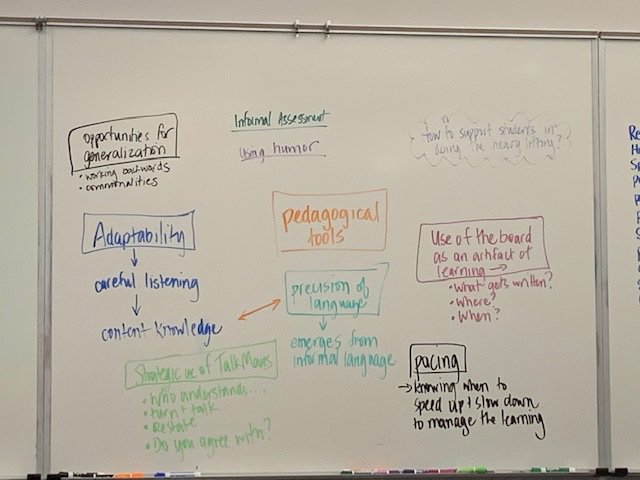 opportunities for
generalization
• working backwards
• commonalities
Informal Assessment
Using humor
How to support students in
doing the heavy lifting?
pedagogical
tools
Adaptability
↓
careful listening
↓
content knowledge
precision of
language
↓
emerges from
informal language
Use of the board
as an artifact of
learning →
• What gets written?
• Where?
• When?
Strategic use of Talk Moves
• Who understands...
• turn + talk
• Restate
• Do you agree with?
pacing
→ knowing when to
speed up & slow down
to manage the learning